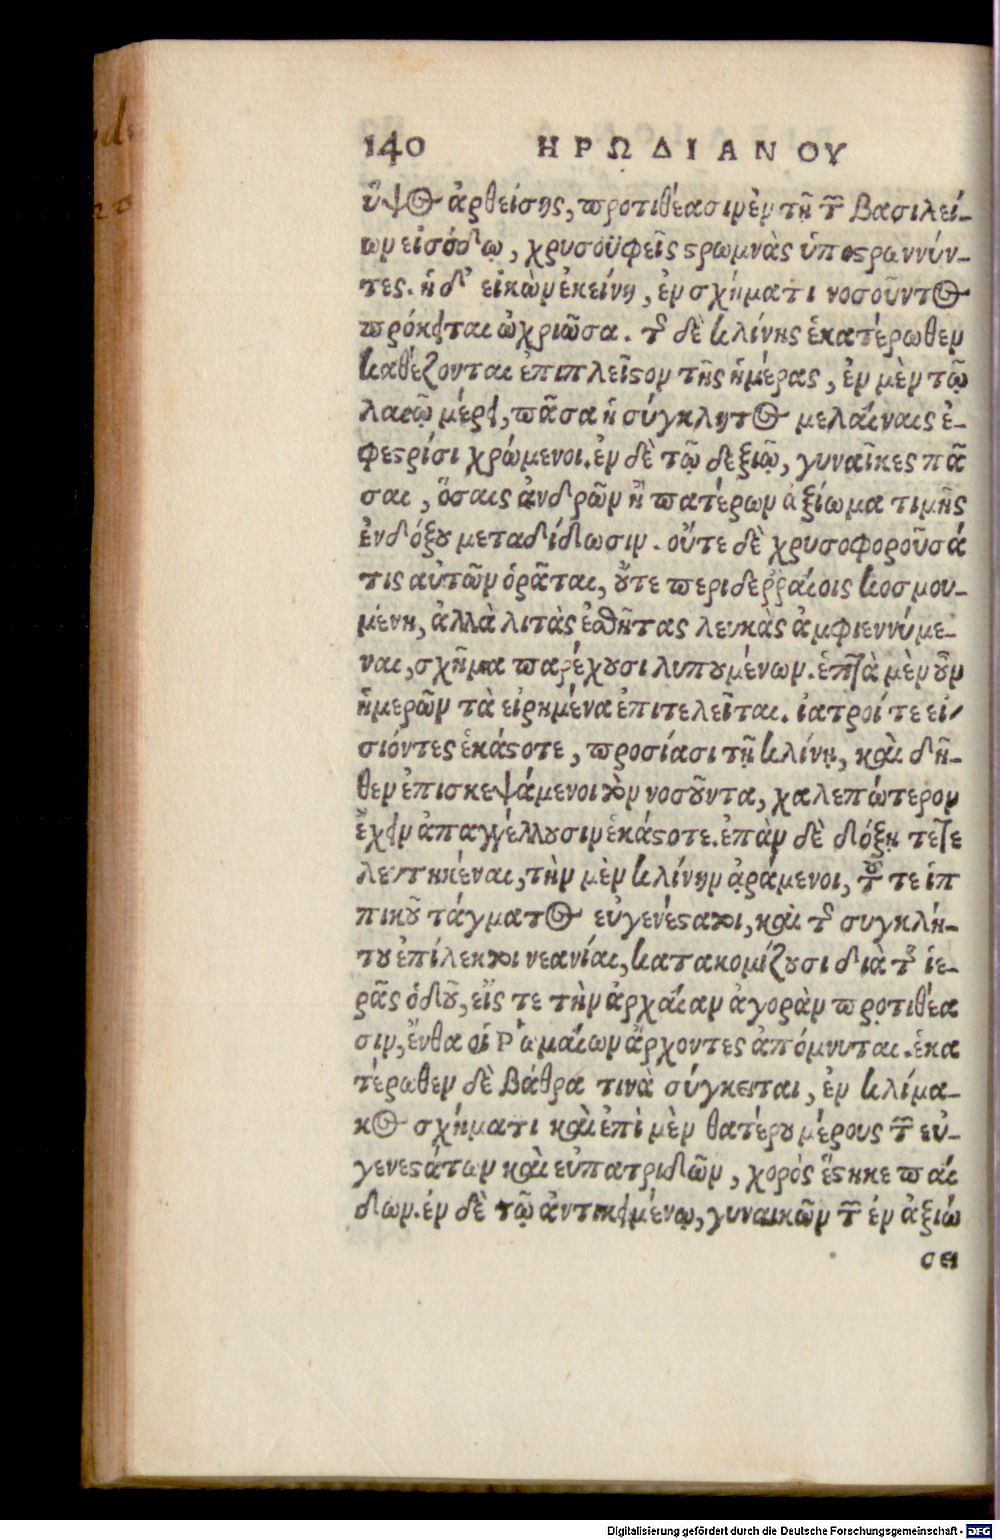 140 ΗΡΩΔΙΑΝΟΥ
ὕψος ἀρθείσης, προτιθέασιν ἐν τῇ τῶν βασιλεί-
ων εἰσόδῳ, χρυσοϋφεῖς στρωμνὰς ὑποστρωννύν-
τες. ἡ δ' εἰκὼν ἐκείνη, ἐν σχήματι νοσοῦντος
πρόκειται ὠχριῶσα. τῆς δὲ κλίνης ἑκατέρωθεν
καθέζονται ἐπιπλεῖστον τῆς ἡμέρας, ἐν μὲν τῷ
λαιῷ μέρει, πᾶσα ἡ σύγκλητος μελαίναις ἐ-
φεστρίσι χρώμενοι. ἐν δὲ τῷ δεξιῷ, γυναῖκες πᾶ
σαι, ὅσαις ἀνδρῶν ἢ πατέρων ἀξίωμα τιμῆς
ἐνδόξου μεταδίδωσιν. οὔτε δὲ χρυσοφοροῦσά
τις αὐτῶν ὁρᾶται, οὔτε περιδερραίοις κοσμου-
μένη, ἀλλὰ λιτὰς ἐσθῆτας λευκὰς ἀμφιεννύμε-
ναι, σχῆμα παρέχουσι λυπουμένων. ἑπτὰ μὲν οὖν
ἡμερῶν τὰ εἰρημένα ἐπιτελεῖται. ἰατροί τε εἰ-
σιόντες ἑκάστοτε, προσίασι τῇ κλίνῃ, καὶ δῆ-
θεν ἐπισκεψάμενοι τὸν νοσοῦντα, χαλεπώτερον
ἔχειν ἀπαγγέλλουσιν ἑκάστοτε. ἐπὰν δὲ δόξῃ τετε
λευτηκέναι, τὴν μὲν κλίνην ἀράμενοι, τοῦ τε ἱπ
πικοῦ τάγματος εὐγενέστατοι, καὶ τῆς συγκλή-
του ἐπίλεκτοι νεανίαι, κατακομίζουσι διὰ τῆς ἱε-
ρᾶς ὁδοῦ, εἴς τε τὴν ἀρχαίαν ἀγορὰν προτιθέα
σιν, ἔνθα οἱ Ῥωμαίων ἄρχοντες ἀπόμνυται. ἑκα
τέρωθεν δὲ βάθρα τινὰ σύγκειται, ἐν κλίμα-
κος σχήματι καὶ ἐπὶ μὲν θατέρου μέρους τῶν εὐ-
γενεστάτων καὶ εὐπατριδῶν, χορὸς ἕστηκε παί
δων. ἐν δὲ τῷ ἀντικειμένῳ, γυναικῶν τῶν ἐν ἀξιώ
σει
Digitalisierung gefördert durch die Deutsche Forschungsgemeinschaft - DFG